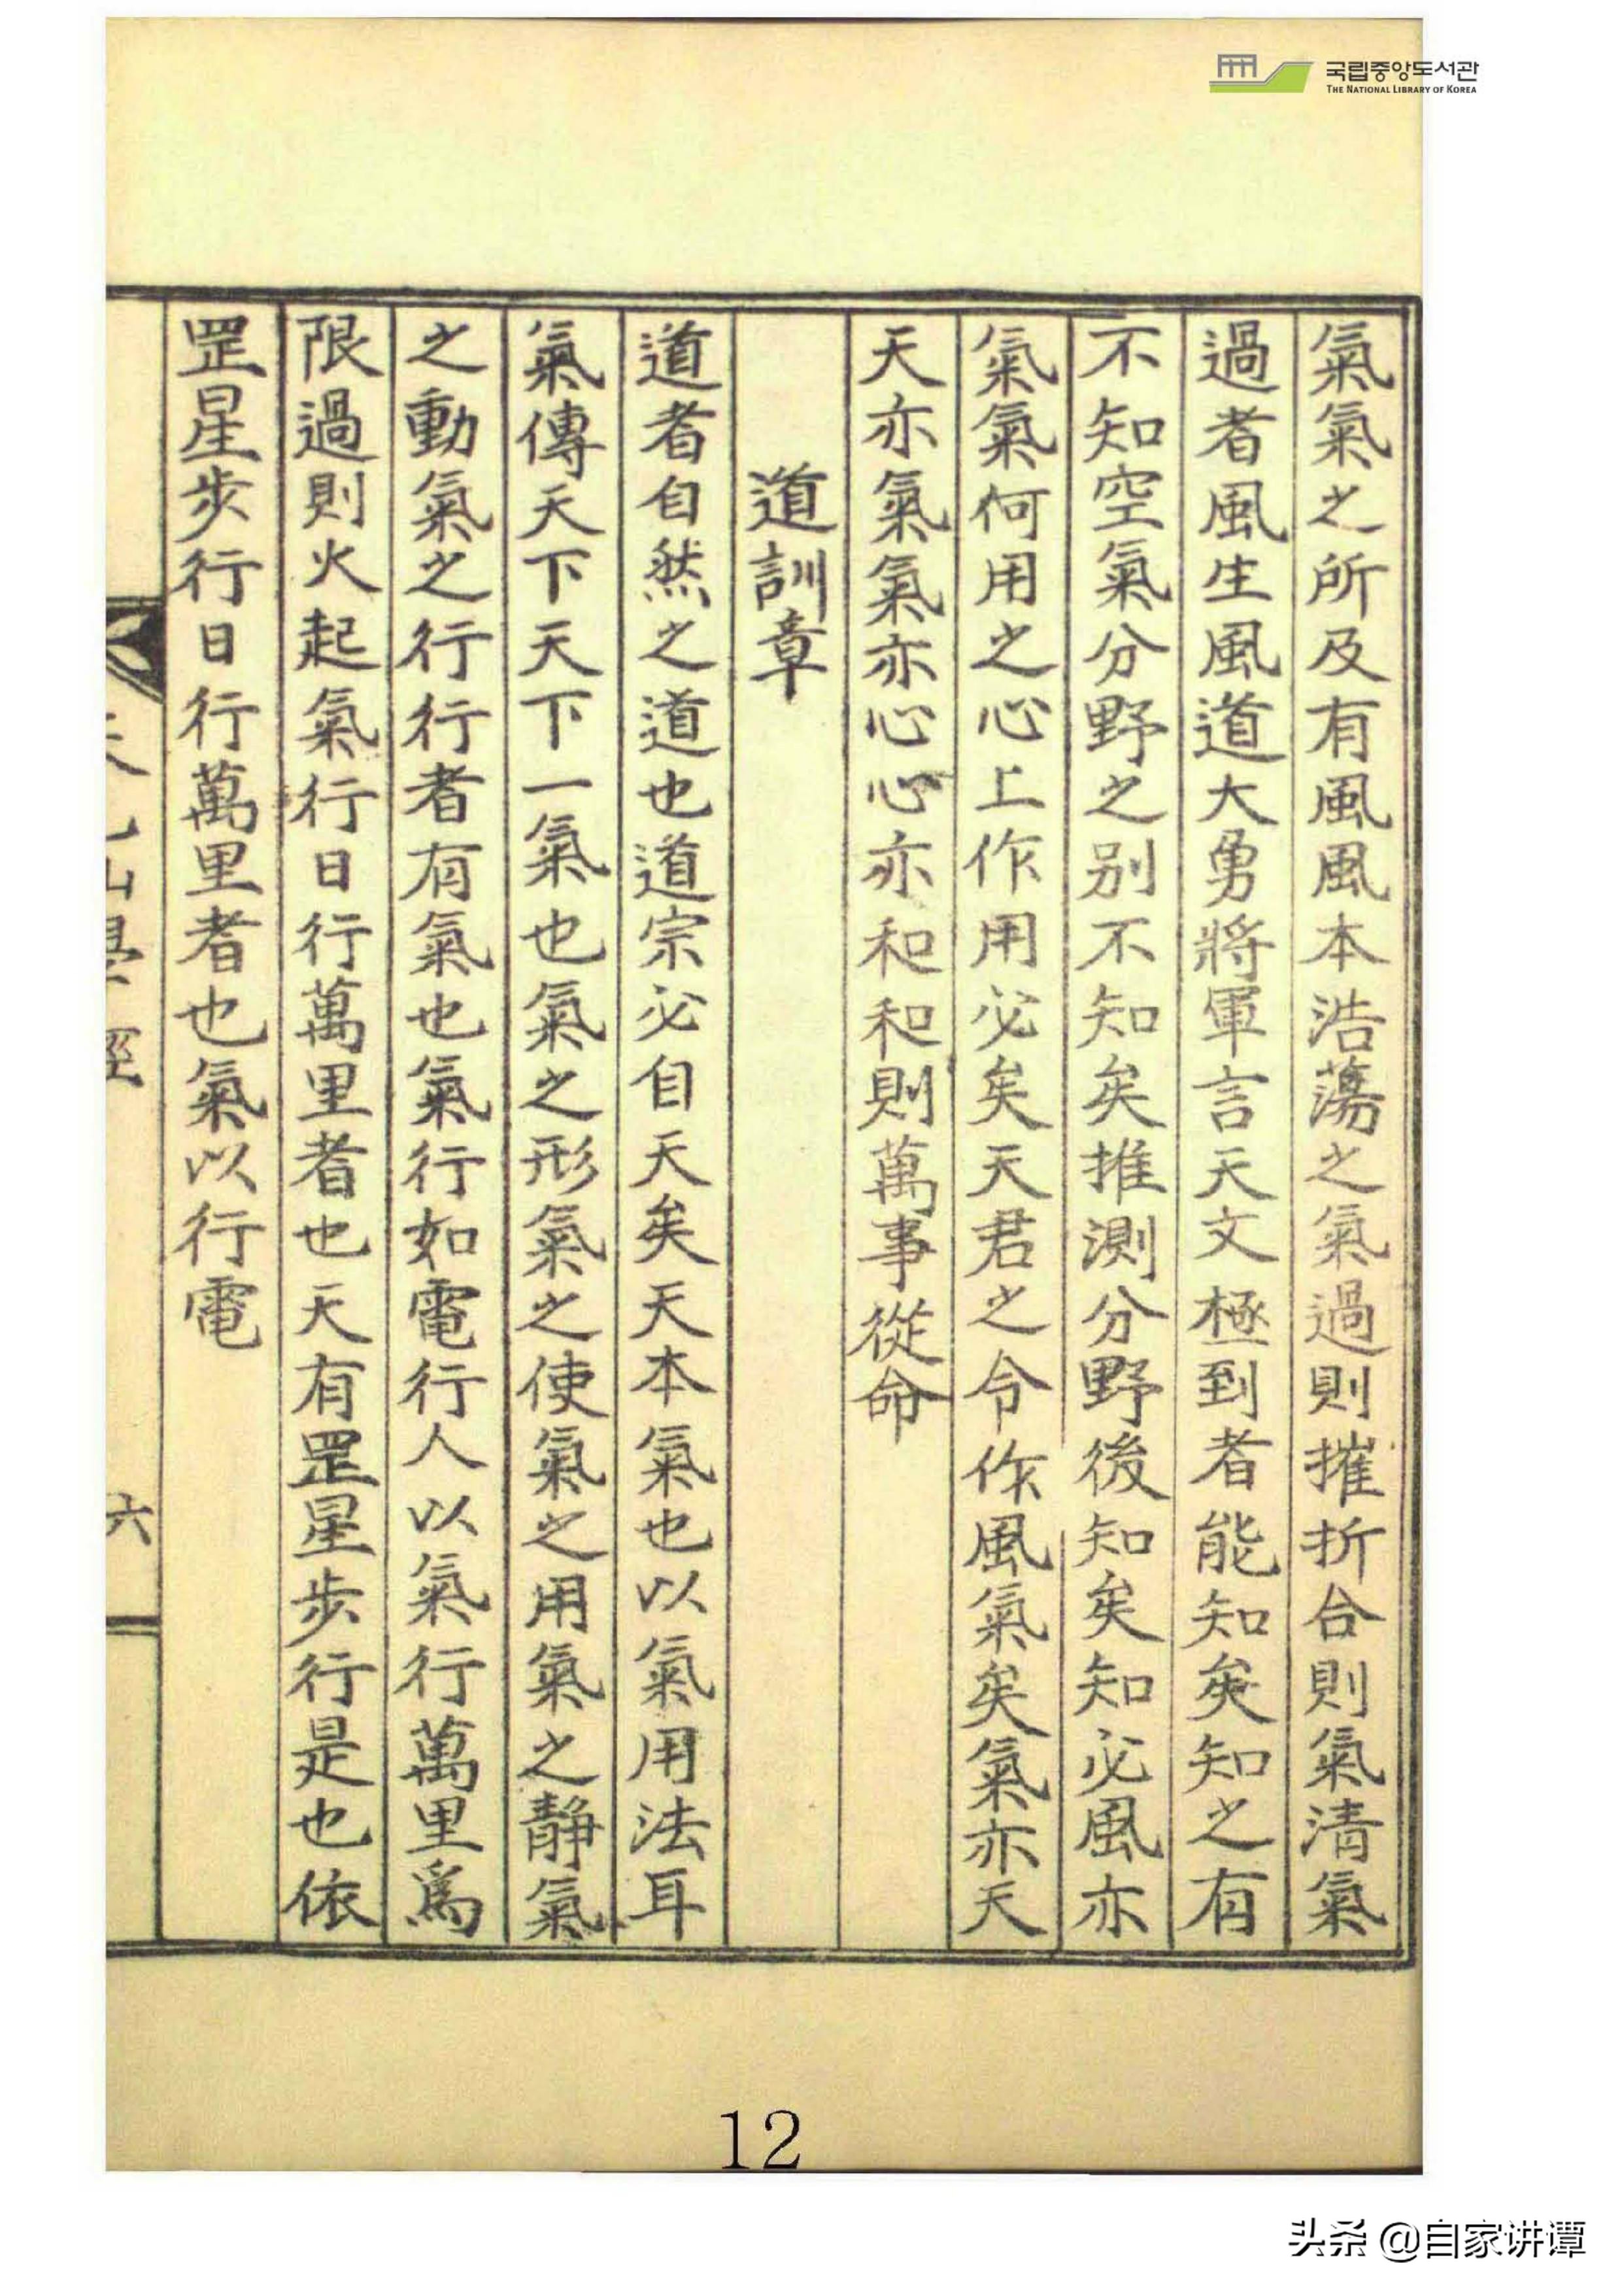 국립중앙도서관
THE NATIONAL LIBRARY OF KOREA
氣氣之所及有風風本浩蕩之氣過則摧折合則氣清氣
過者風生風道大勇將軍言天文極到者能知矣知之有
不知空氣分野之别不知矣推測分野後知矣知必風亦
氣氣何用之心上作用必矣天君之令作風氣矣氣亦天
天亦氣氣亦心心亦和和則萬事從命
道訓章
道者自然之道也道宗必自天矣天本氣也以氣用法耳
氣傳天下天下一氣也氣之形氣之使氣之用氣之靜氣
之動氣之行行者有氣也氣行如電行人以氣行萬里爲
限過則火起氣行日行萬里者也天有罡星步行是也依
罡星步行日行萬里者也氣以行電
六
12
头条 @自家讲谭